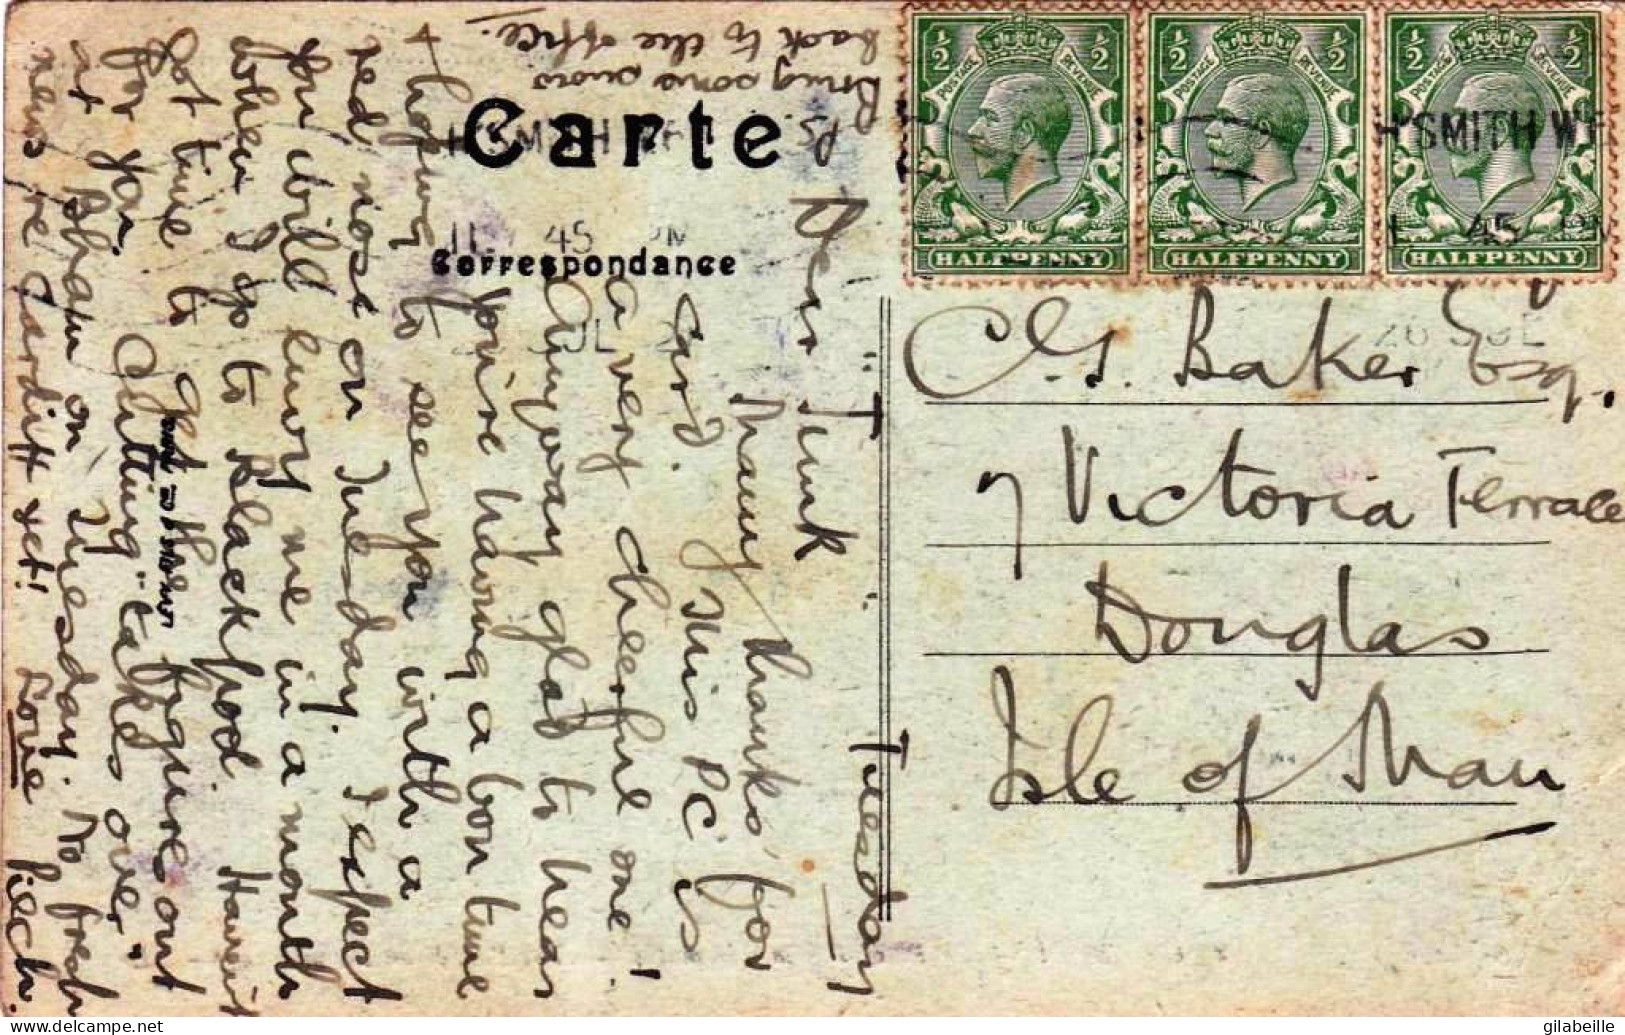 Carte
Correspondance
H'SMITH W
11 45 PM
JUL
½ ½
POSTAGE REVENUE
HALFPENNY
½ ½
POSTAGE REVENUE
HALFPENNY
½ ½
POSTAGE REVENUE
HALFPENNY
H'SMITH W
45 PM
26 JUL
C.S. Baker Esq.
7 Victoria Terrace
Douglas
Isle of Man
Tuesday
Dear Tunk
Many thanks for
card. This PC is
a very cheerful one!
Anyway glad to hear
you're having a bon time
+ hoping to see you with a
red nose on Tuesday. I expect
you will envy me in a month
when I go to Blackpool. Havent
got time to get the figures out
for yon "Cutting" talks over
at Shaw on Thursday. No fresh
news re Cardiff yet! Love Piech.
Bring some
back to the office.
delcampe.net
gilabeille